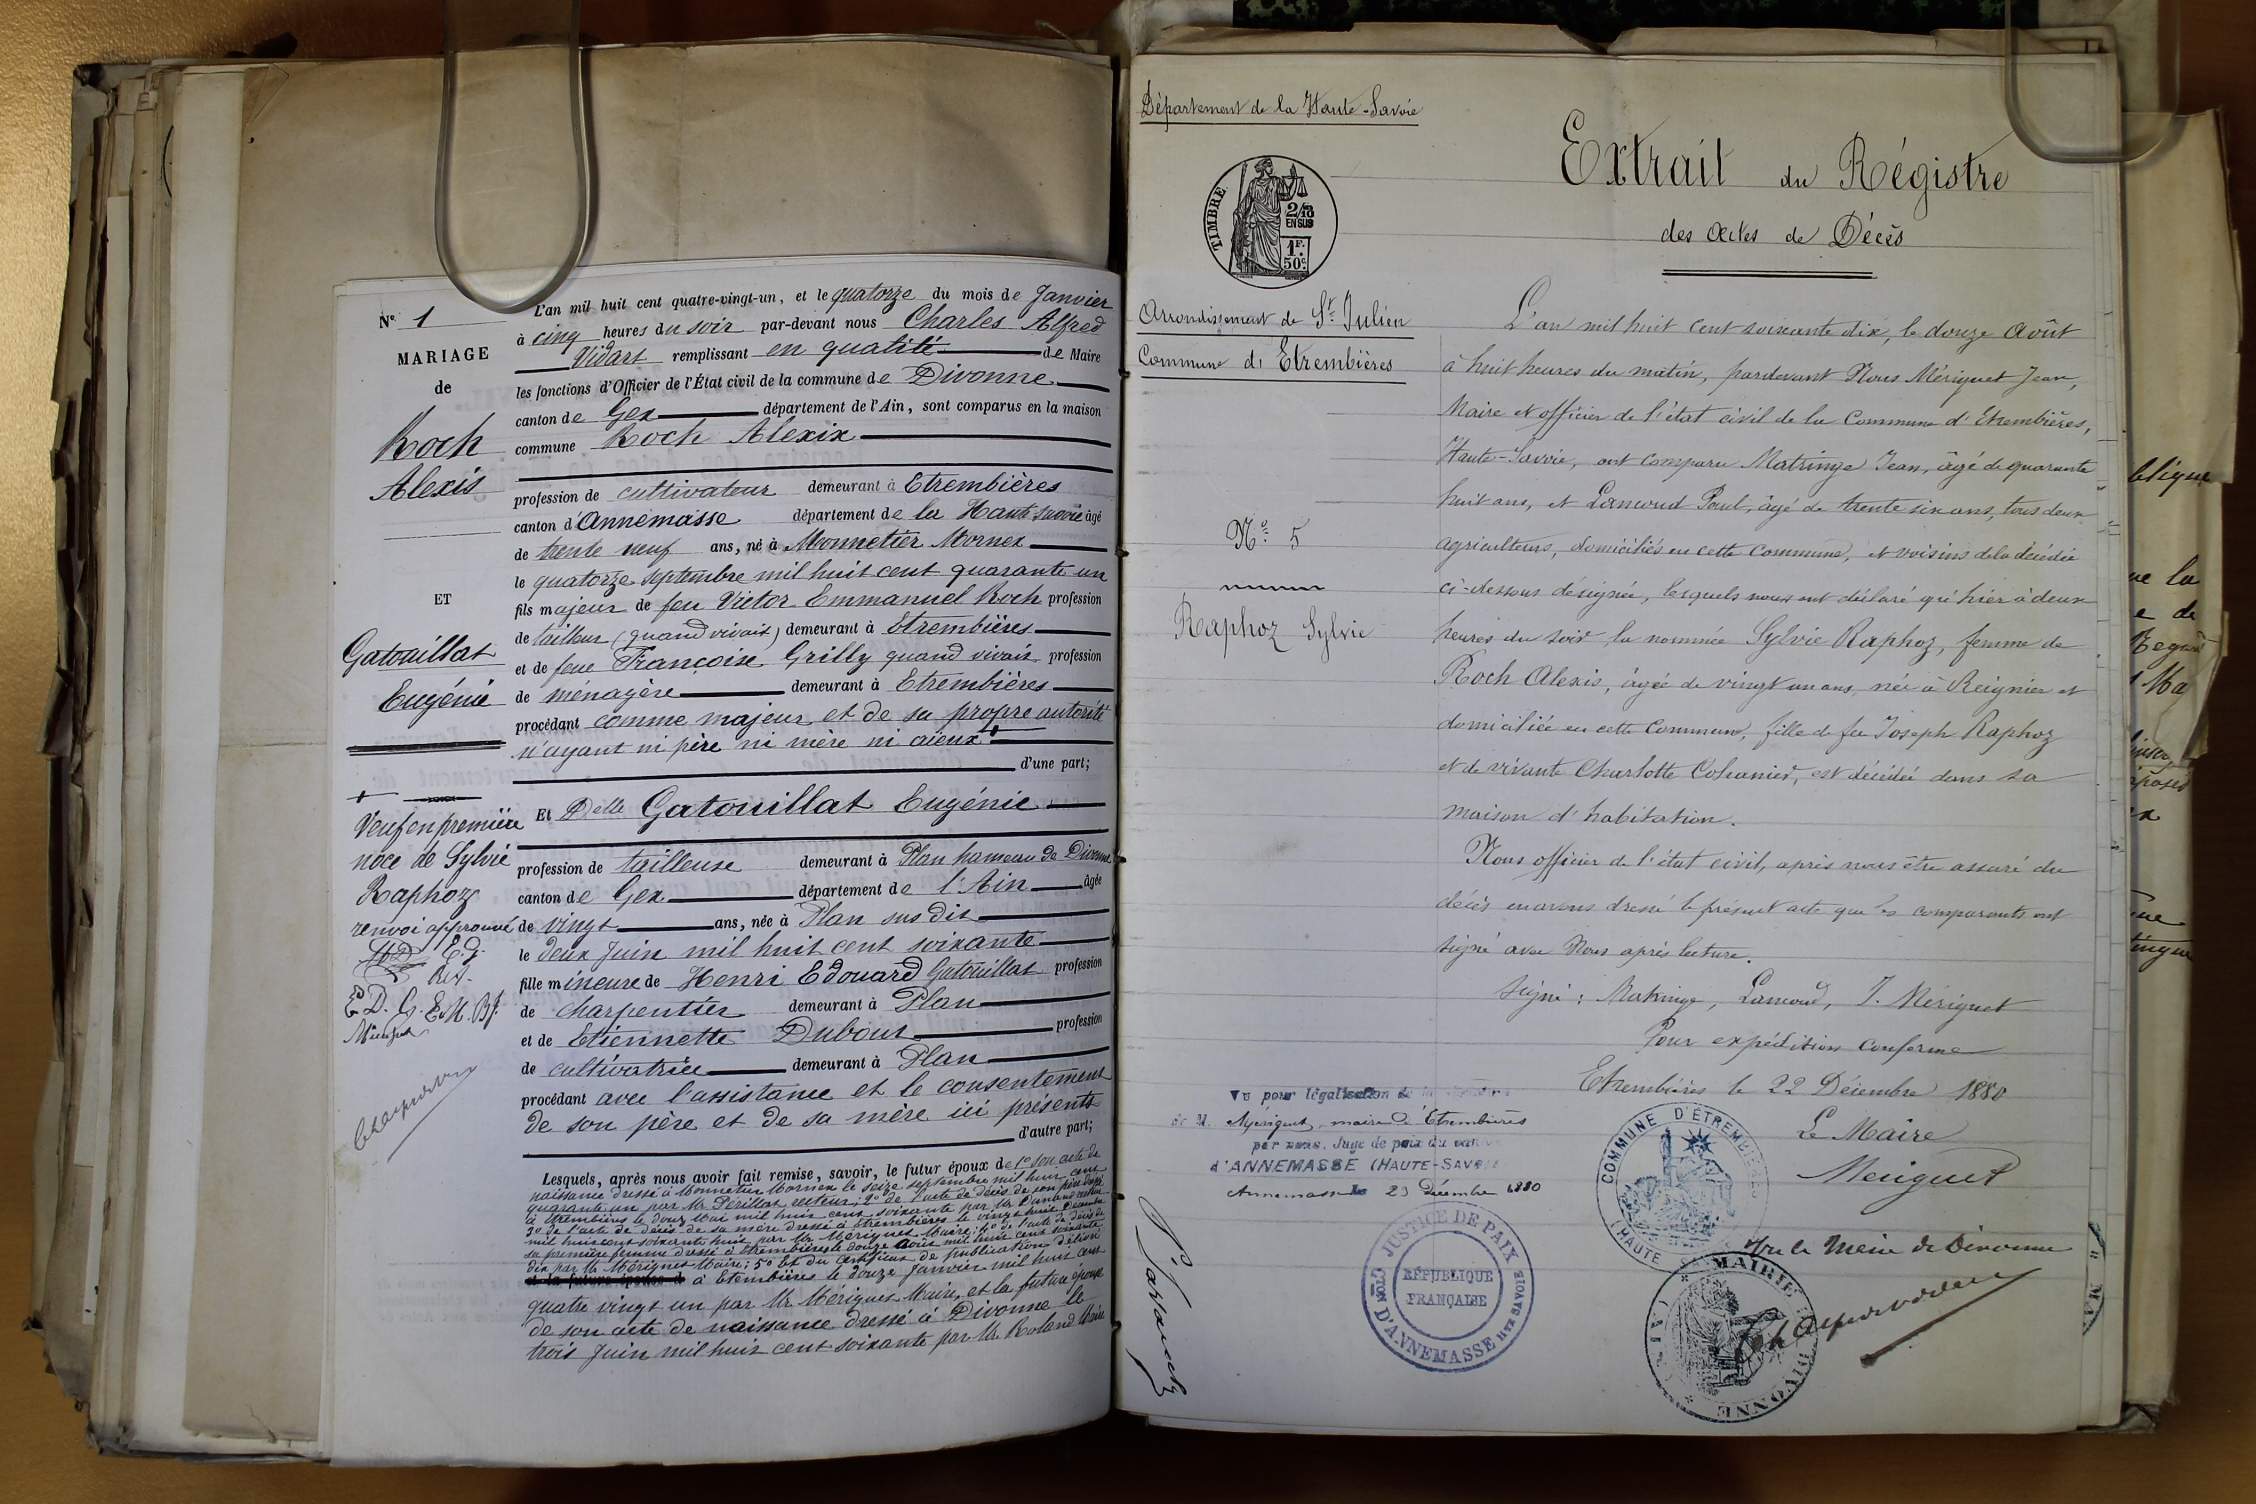 Nº 1
MARIAGE
de
Roch
Alexis
ET
Gatouillat
Eugénie
Veuf en première
noce de Sylvie
Raphoz
renvoi approuvé
E.g.
E.D. G. E.M. B.J.
L'an mil huit cent quatre-vingt-un, et le quatorze du mois de Janvier
à cinq heures du soir par-devant nous Charles Alfred
Vidart remplissant en qualité de Maire
les fonctions d'Officier de l'État civil de la commune de Divonne
canton de Gex département de l'Ain, sont comparus en la maison
commune Roch Alexis
profession de cultivateur demeurant à Etrembières
canton d'Annemasse département de la Haute Savoie âgé
de trente neuf ans, né à Monnetier Mornex
le quatorze septembre mil huit cent quarante un
fils majeur de feu Victor Emmanuel Roch profession
de tailleur (quand vivait) demeurant à Etrembières
et de feue Françoise Grilly quand vivait profession
de ménagère demeurant à Etrembières
procédant comme majeur et de sa propre autorité
n'ayant ni père ni mère ni aïeux
d'une part;
Et Delle Gatouillat Eugénie
profession de tailleuse demeurant à Plan hameau de Divonne
canton de Gex département de l'Ain âgée
de vingt ans, née à Plan sus dit
le deux Juin mil huit cent soixante
fille mineure de Henri Edouard Gatouillat profession
de charpentier demeurant à Plan
et de Etiennette Dubout profession
de cultivatrice demeurant à Plan
procédant avec l'assistance et le consentement
de son père et de sa mère ici présents
d'autre part;
Lesquels, après nous avoir fait remise, savoir, le futur époux de 1º son acte de
naissance dressé à Monnetier Mornex le seize septembre mil huit cent
quarante un par Mr Périllat recteur; 2º de l'acte de décès de son père dressé
à Etrembières le douze Mai mil huit cent soixante par Mr
3º de l'acte de décès de sa mère dressé à Etrembières le vingt huit Décembre
mil huit cent soixante huit par Mr Mériguet Maire; 4º de l'acte de décès de
sa première femme dressé à Etrembières le douze Août mil huit cent soixante
dix par Mr Mériguet Maire; 5º Et du certificat de publication délivré
à Etrembières le douze Janvier mil huit cent
quatre vingt un par Mr Mériguet Maire, et la future épouse
de son acte de naissance dressé à Divonne le
trois Juin mil huit cent soixante par Mr Roland Maire
Département de la Haute-Savoie
TIMBRE
2/10
EN SUS
1F.
50c.
Arrondissement de St Julien
Commune d'Etrembières
Nº 5
Raphoz Sylvie
Extrait du Régistre
des Actes de Décès
L'an mil huit cent soixante dix, le douze Août
à huit heures du matin, pardevant Nous Mériguet Jean,
Maire et officier de l'état civil de la Commune d'Etrembières,
Haute-Savoie, ont comparu Matringe Jean, âgé de quarante
huit ans, et Lamoud Paul, âgé de trente six ans, tous deux
agriculteurs, domiciliés en cette Commune, et voisins de la décédée
ci-dessous désignée, lesquels nous ont déclaré qu'hier à deux
heures du soir la nommée Sylvie Raphoz, femme de
Roch Alexis, âgée de vingt un ans, née à Reignier et
domiciliée en cette Commune, fille de feu Joseph Raphoz
et de vivante Charlotte Cohanier, est décédée dans sa
maison d'habitation.
Nous officier de l'état civil, après nous être assuré du
décès en avons dressé le présent acte que les comparants ont
signé avec Nous après lecture.
Signé: Matringe, Lamoud, J. Mériguet
Pour expédition conforme
Etrembières le 22 Décembre 1880
Le Maire
Meriguet
Vu pour légalisation de la signature
de M. Meriguet, maire d'Etrembières
par nous, Juge de paix du canton
d'ANNEMASSE (HAUTE-SAVOIE
Annemasse le 23 Décembre 1880
JUSTICE DE PAIX
RÉPUBLIQUE
FRANÇAISE
CTON D'ANNEMASSE HTE SAVOIE
COMMUNE D'ÉTREMBIÈRES
(HAUTE
Vu le Maire de Divonne
MAIRIE
DIVONNE
(AIN)